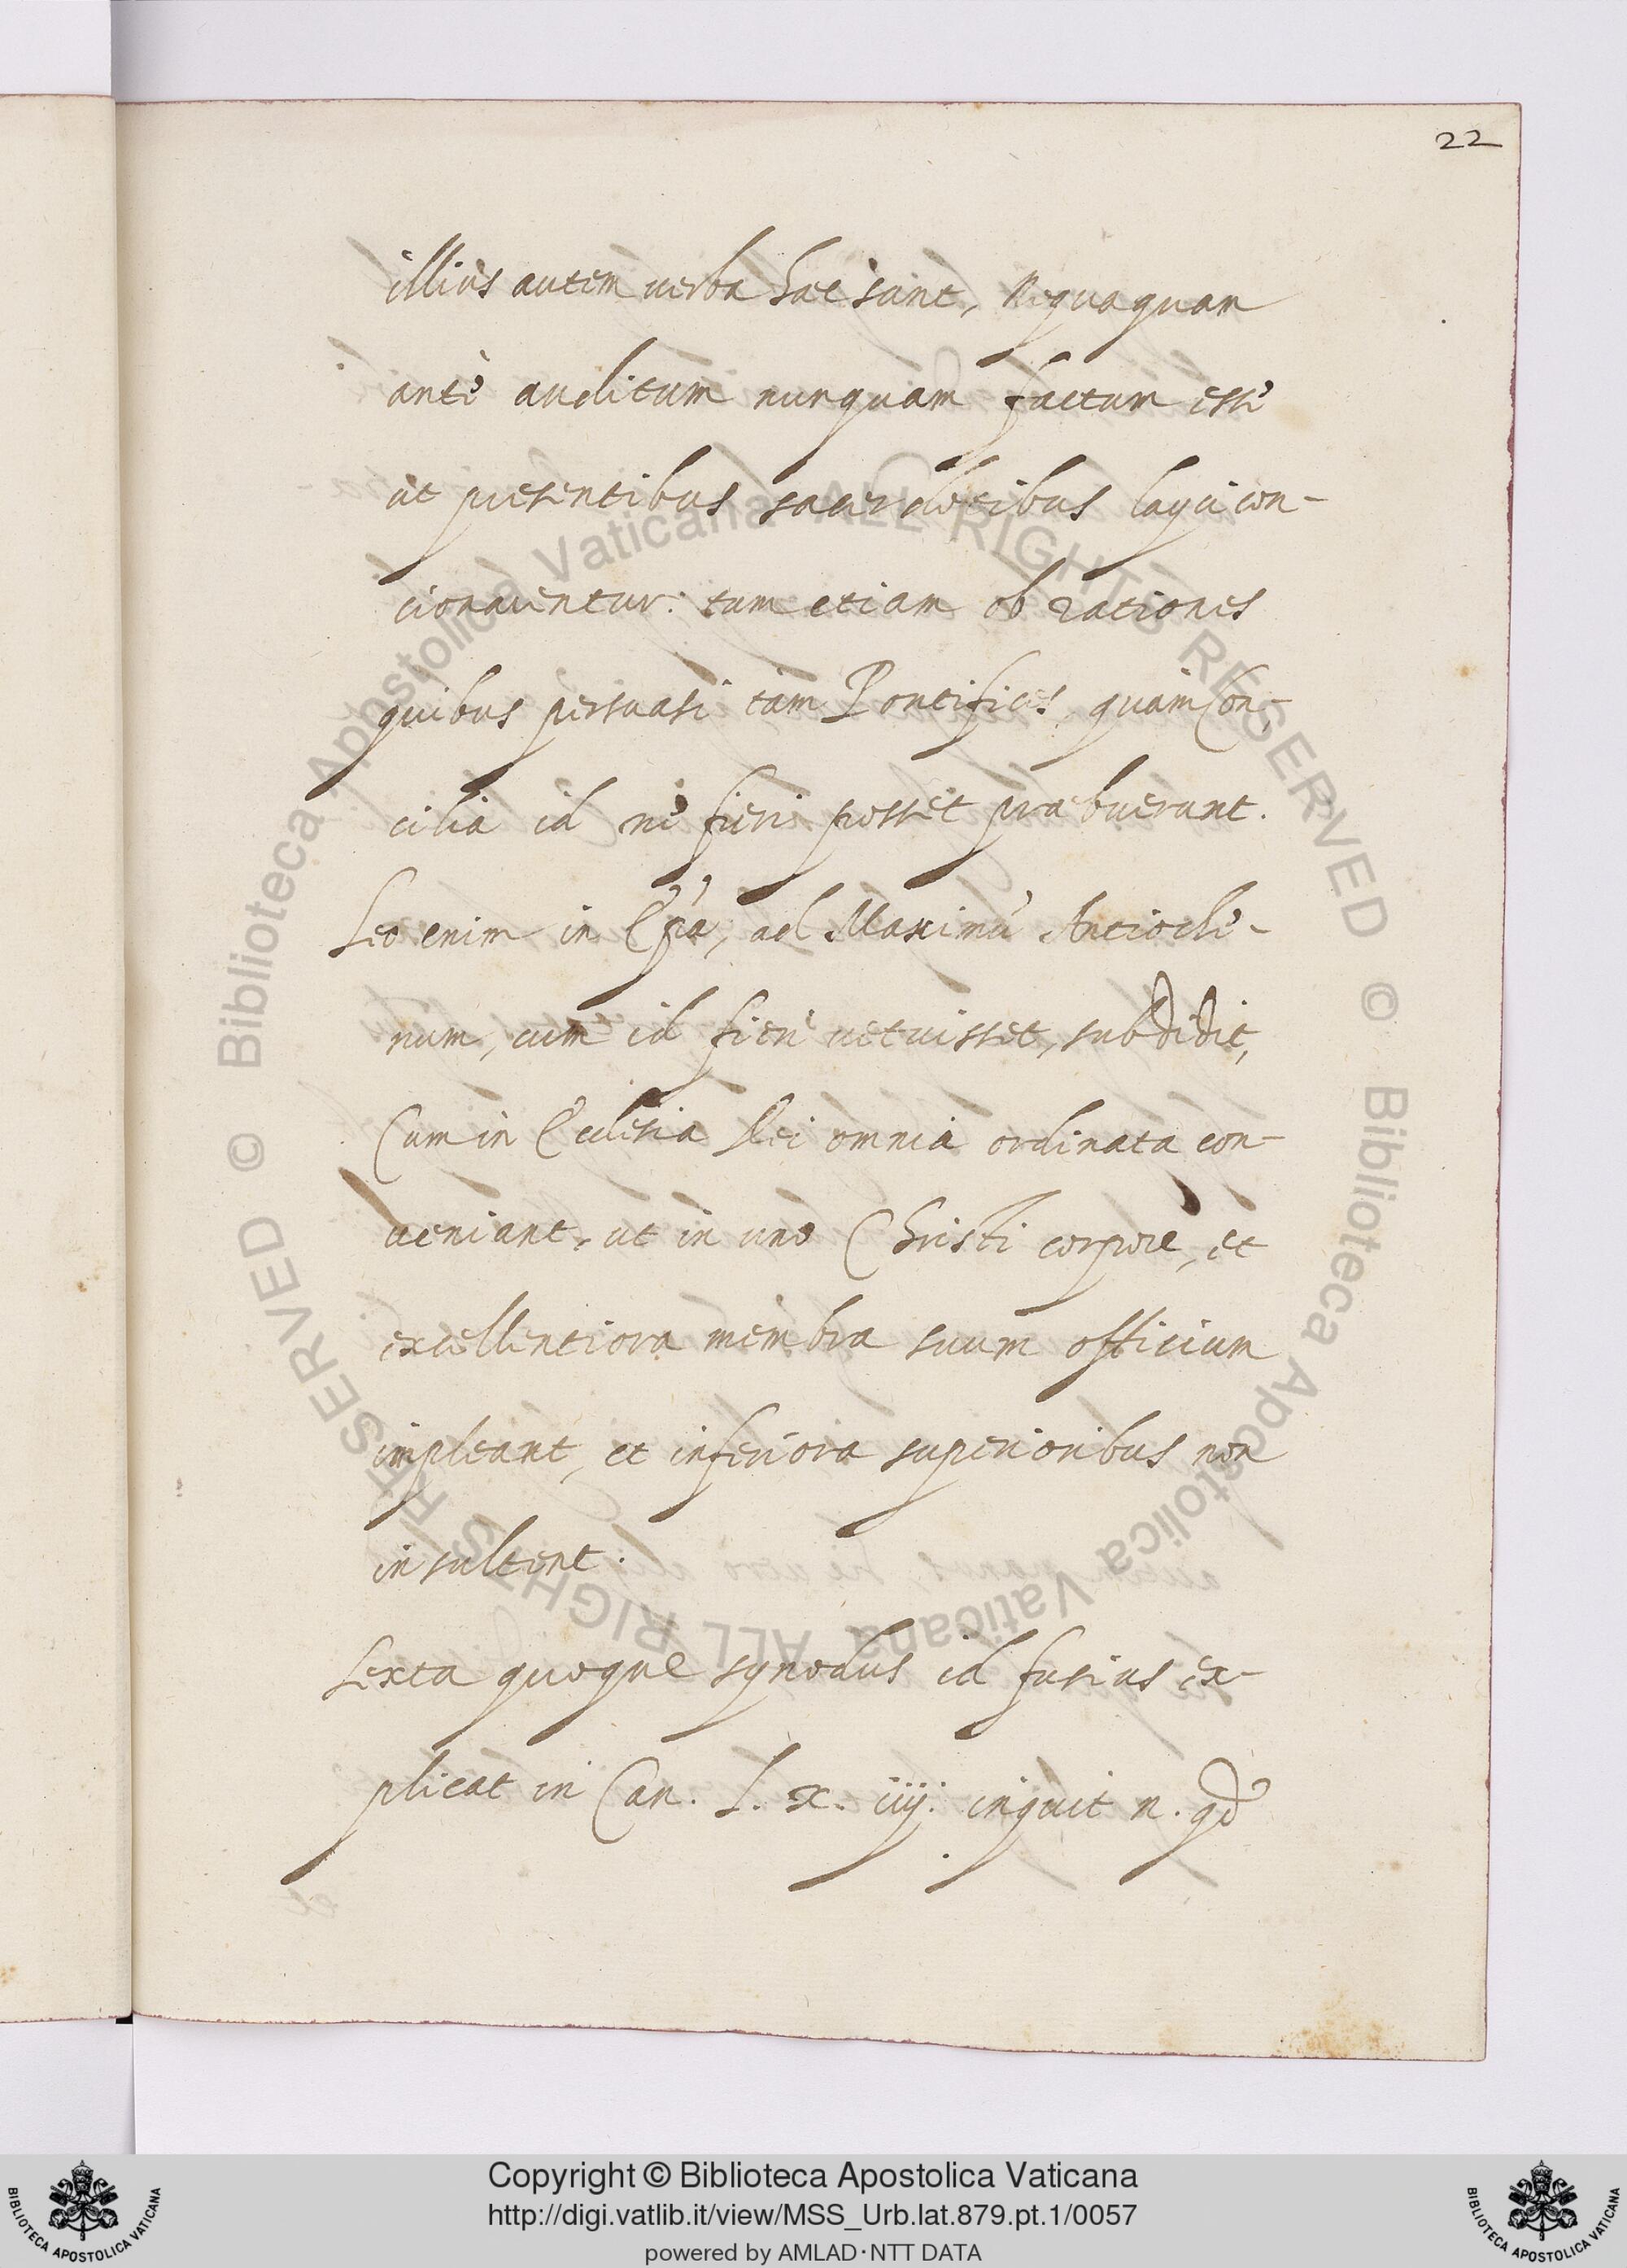 22
illius autem uerba haec sunt, Nequaquam
ante auditum nunquam factum esse
ut presentibus sacerdotibus layci con-
cionarentur: tum etiam ob rationes
quibus persuasi tam Pontifices, quam Con-
cilia id ne fieri posset prabuerunt.
Leo enim in Epa, ad Maximu Antioche-
num, cum id fieri uetuisset, subdidit,
Cum in Ecclesia Dei omnia ordinata con-
ueniant, ut in uno Christi corpore, et
excellentiora membra suum officium
impleant, et inferiora superioribus non
insultent.
Sexta quoque synodus id fusius ex-
plicat in Can. L. x. iiij. inquit n. qd
© Biblioteca Apostolica Vaticana ALL RIGHTS RESERVED
© Biblioteca Apostolica Vaticana ALL RIGHTS RESERVED
BIBLIOTECA APOSTOLICA VATICANA
Copyright © Biblioteca Apostolica Vaticana
http://digi.vatlib.it/view/MSS_Urb.lat.879.pt.1/0057
powered by AMLAD·NTT DATA
BIBLIOTECA APOSTOLICA VATICANA